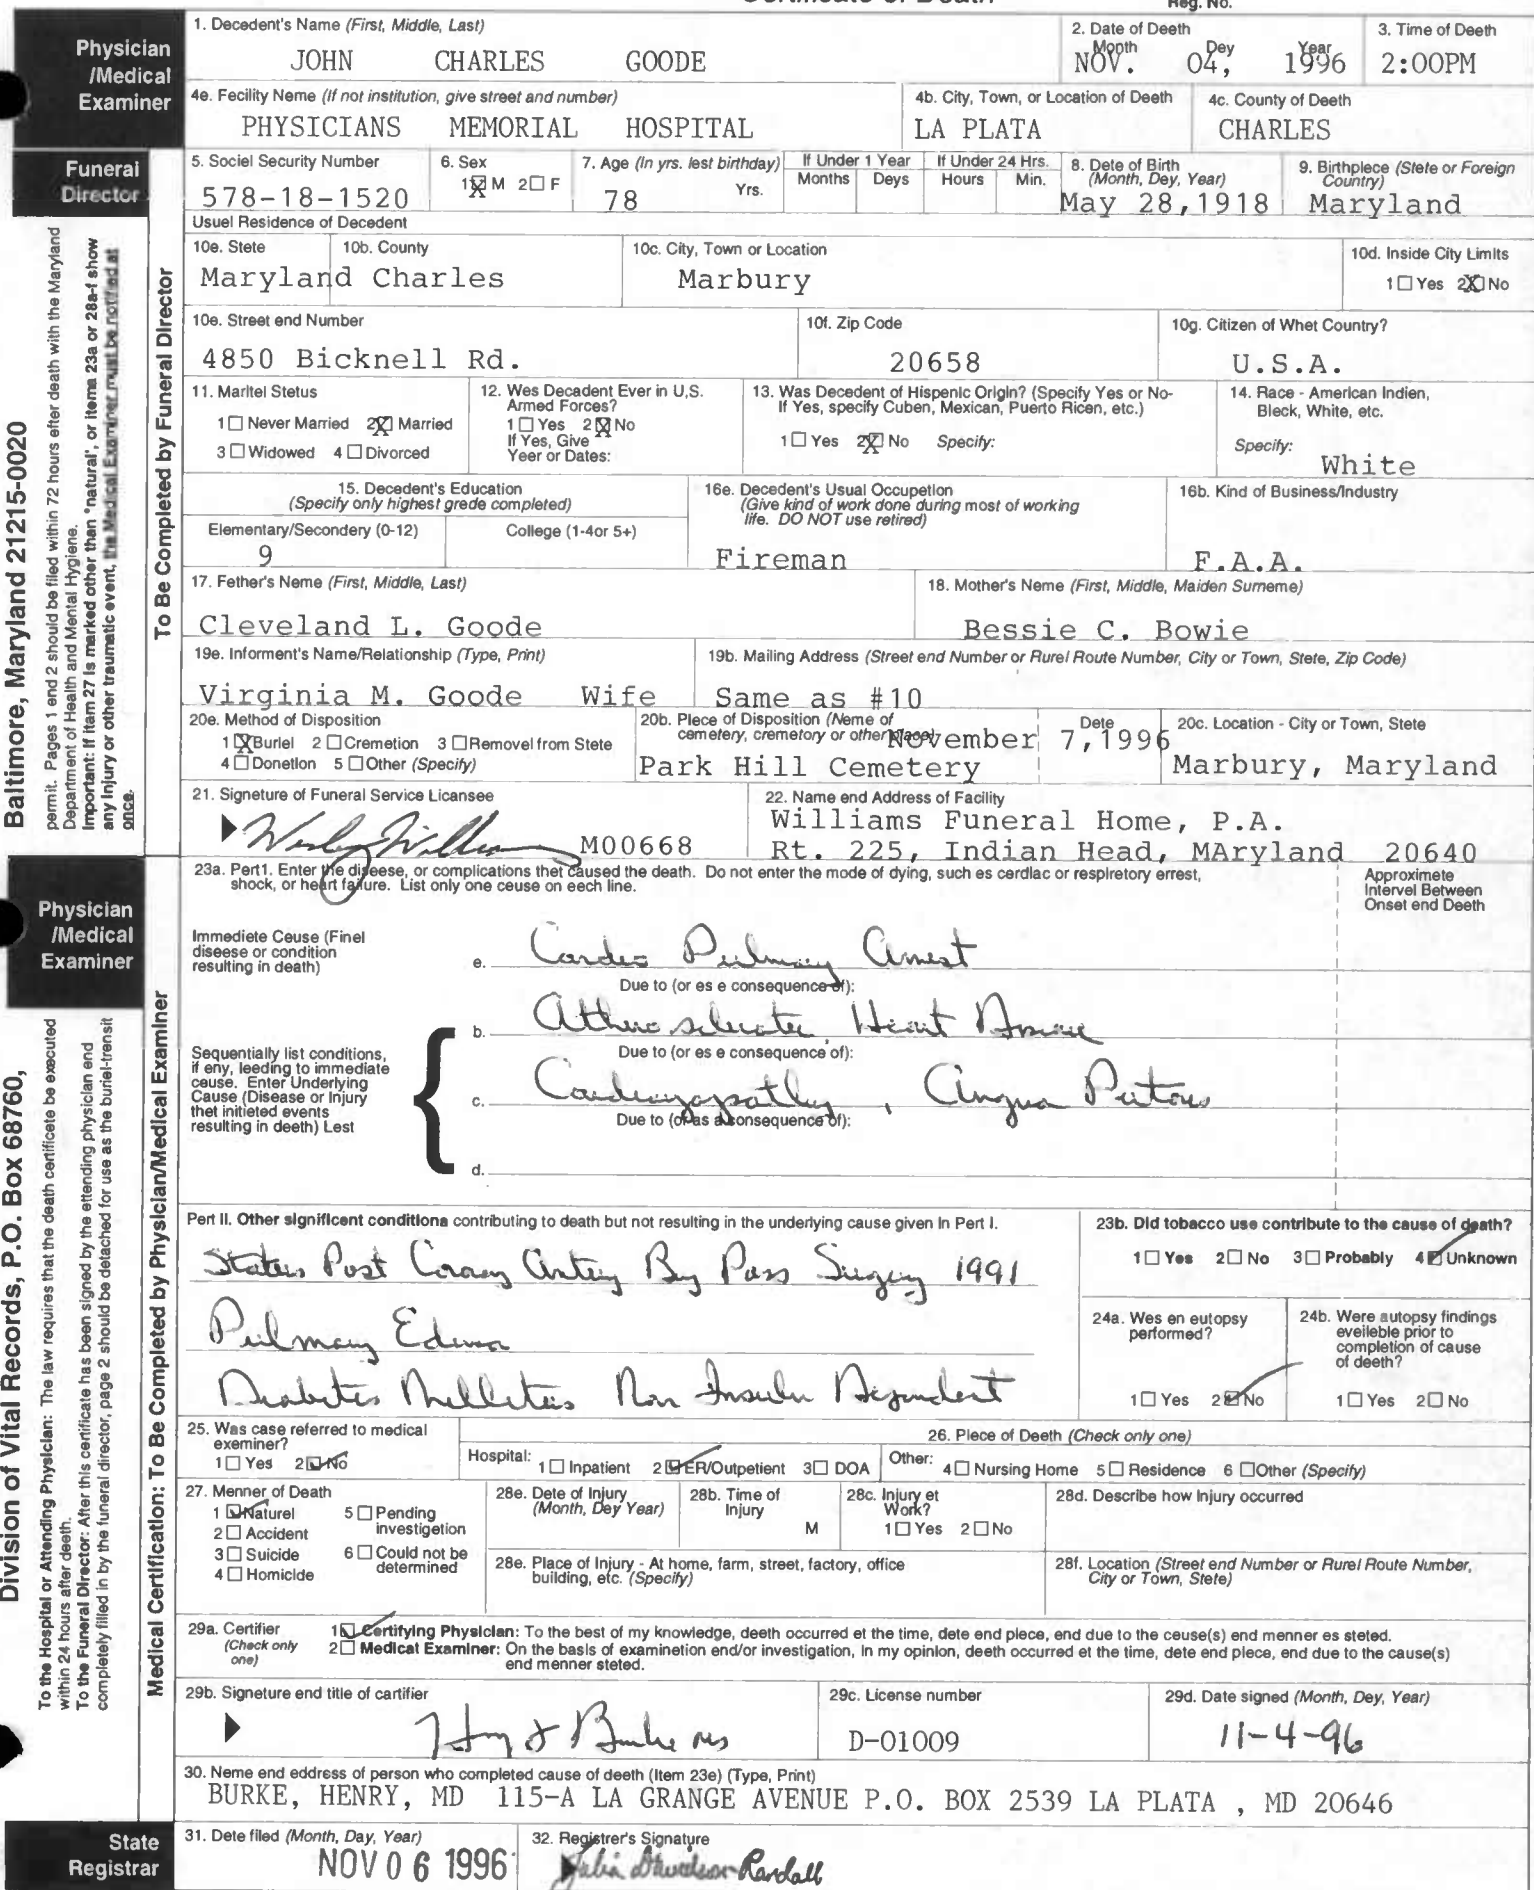 Certificate of Death
Reg. No.
Physician /Medical Examiner
1. Decedent's Name (First, Middle, Last)
JOHN CHARLES GOODE
2. Date of Deeth
Month Dey Year
NOV. 04, 1996
3. Time of Deeth
2:00PM
4e. Fecility Name (If not institution, give street and number)
PHYSICIANS MEMORIAL HOSPITAL
4b. City, Town, or Location of Deeth
LA PLATA
4c. County of Deeth
CHARLES
Funeral Director
5. Sociel Security Number
578-18-1520
6. Sex
1☒ M 2☐ F
7. Age (In yrs. lest birthday)
78 Yrs.
If Under 1 Year
Months Deys
If Under 24 Hrs.
Hours Min.
8. Dete of Birth (Month, Dey, Year)
May 28,1918
9. Birthplece (Stete or Foreign Country)
Maryland
Usuel Residence of Decedent
10e. Stete
Maryland
10b. County
Charles
10c. City, Town or Location
Marbury
10d. Inside City Limits
1☐ Yes 2☒ No
10e. Street end Number
4850 Bicknell Rd.
10f. Zip Code
20658
10g. Citizen of Whet Country?
U.S.A.
11. Maritel Stetus
1☐ Never Married 2☒ Married
3☐ Widowed 4☐ Divorced
12. Wes Decadent Ever in U,S. Armed Forces?
1☐ Yes 2☒ No
If Yes, Give
Yeer or Dates:
13. Was Decedent of Hispenic Origin? (Specify Yes or No-
If Yes, specify Cuben, Mexican, Puerto Ricen, etc.)
1☐ Yes 2☒ No Specify:
14. Race - American Indien, Bleck, White, etc.
Specify:
White
15. Decedent's Education
(Specify only highest grede completed)
Elementary/Secondery (0-12)
9
College (1-4or 5+)
16e. Decedent's Usual Occupetion
(Give kind of work done during most of working
life. DO NOT use retired)
Fireman
16b. Kind of Business/Industry
F.A.A.
17. Father's Name (First, Middle, Last)
Cleveland L. Goode
18. Mother's Name (First, Middle, Maiden Surneme)
Bessie C. Bowie
19e. Informent's Name/Relationship (Type, Print)
Virginia M. Goode Wife
19b. Mailing Address (Street end Number or Rurel Route Number, City or Town, Stete, Zip Code)
Same as #10
20e. Method of Disposition
1☒ Buriel 2☐ Cremetion 3☐ Removel from Stete
4☐ Donetion 5☐ Other (Specify)
20b. Plece of Disposition (Neme of
cemetery, cremetory or other place)
Dete
November 7,1996
Park Hill Cemetery
20c. Location - City or Town, Stete
Marbury, Maryland
21. Signature of Funeral Service Licensee
Wesley Williams M00668
22. Name end Address of Facility
Williams Funeral Home, P.A.
Rt. 225, Indian Head, MAryland 20640
Physician /Medical Examiner
23a. Part1. Enter the diseese, or complications thet caused the death. Do not enter the mode of dying, such es cerdlac or respiretory errest,
shock, or heart failure. List only one ceuse on eech line.
Approximete
Intervel Between
Onset end Deeth
Immediete Ceuse (Finel
diseese or condition
resulting in death)
e. Cardio Pulmonary Arrest
Due to (or es e consequence of):
b. Atherosclerotic Heart Disease
Due to (or es e consequence of):
Sequentially list conditions,
if eny, leeding to immediate
ceuse. Enter Underlying
Cause (Disease or Injury
thet initieted events
resulting in deeth) Lest
c. Cardiomyopathy, Angina Pectoris
Due to (or as a consequence of):
d.
Part II. Other significent conditiona contributing to death but not resulting in the underlying cause given In Part I.
Status Post Coronary Artery By Pass Surgery 1991
Pulmonary Edema
Diabetes Mellitus Non Insulin Dependent
23b. Did tobacco use contribute to the cause of death?
1☐ Yes 2☐ No 3☐ Probably 4☑ Unknown
24a. Wes en eutopsy performed?
1☐ Yes 2☑ No
24b. Were autopsy findings
eveileble prior to
completion of cause
of deeth?
1☐ Yes 2☐ No
25. Was case referred to medical exeminer?
1☐ Yes 2☑ No
26. Plece of Deeth (Check only one)
Hospital: 1☐ Inpatient 2☑ ER/Outpetient 3☐ DOA
Other: 4☐ Nursing Home 5☐ Residence 6☐ Other (Specify)
27. Menner of Death
1☑ Naturel 5☐ Pending investigetion
2☐ Accident
3☐ Suicide 6☐ Could not be determined
4☐ Homicide
28e. Dete of Injury (Month, Dey Year)
28b. Time of Injury
M
28c. Injury et Work?
1☐ Yes 2☐ No
28d. Describe how Injury occurred
28e. Place of Injury - At home, farm, street, factory, office
building, etc. (Specify)
28f. Locatlon (Street end Number or Rurel Route Number,
City or Town, Stete)
29a. Certifier
(Check only one)
1☑ Certifying Physician: To the best of my knowledge, deeth occurred et the time, dete end plece, end due to the ceuse(s) end menner es steted.
2☐ Medical Examiner: On the basis of examinetion end/or investigation, in my opinion, deeth occurred et the time, dete end plece, end due to the cause(s)
end menner steted.
29b. Signeture end title of cartifier
29c. License number
D-01009
29d. Date signed (Month, Dey, Year)
11-4-96
30. Neme end eddress of person who completed cause of deeth (Item 23e) (Type, Print)
BURKE, HENRY, MD 115-A LA GRANGE AVENUE P.O. BOX 2539 LA PLATA , MD 20646
State Registrar
31. Dete filed (Month, Day, Year)
NOV 06 1996
32. Registrer's Signature
Julia Davidson-Randall
Baltimore, Maryland 21215-0020
permit. Pages 1 end 2 should be filed within 72 hours efter death with the Maryland
Department of Health and Mental Hygiene.
Important: If itam 27 is marked other than "natural', or itema 23a or 28a-f show
any Injury or other traumatic event, the Medical Examiner must be notified at
once.
To Be Completed by Funeral Director
Division of Vital Records, P.O. Box 68760,
To the Hospital or Attending Physician: The law requires that the death certificete be executed
within 24 hours after deeth.
To the Funeral Director: After this certificate has been signed by the ettending physician end
completely filled in by the funeral director, page 2 should be detached for use as the buriel-transit
Medical Certification: To Be Completed by Physician/Medical Examiner